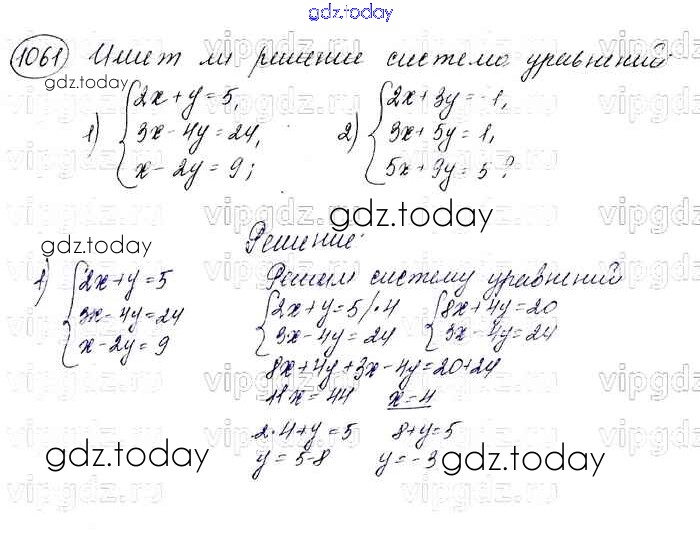 gdz.today
1061 Имеет ли решение система уравнений
gdz.today
1) 2x+y=5,
3x-4y=24,
x-2y=9;
2) 2x+3y=-1,
3x+5y=1,
5x+9y=5?
vipgdz.ru
gdz.today
gdz.today
Решение:
1) 2x+y=5
3x-4y=24
x-2y=9
Решим систему уравнений
2x+y=5/·4
3x-4y=24
8x+4y=20
3x-4y=24
8x+4y+3x-4y=20+24
11x=44 x=4
2·4+y=5 8+y=5
y=5-8 y=-3
gdz.today
gdz.today